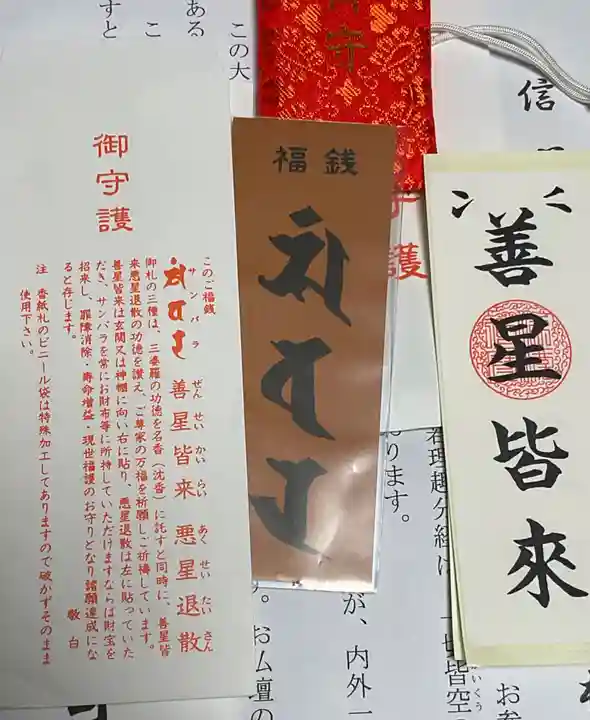 御守護
このご福銭
サンバラ
善星皆来 悪星退散
ぜん せい かい らい あく せい たい さん
御札の三種は、三婆羅の功徳を名香（沈香）に託すと同時に、善星皆
来悪星退散の功徳を讃え、ご尊家の万福を祈願しご祈祷しています。
善星皆来は玄関又は神棚に向い右に貼り、悪星退散は左に貼っていた
だき、サンバラを常にお財布等に所持していただけますならば財宝を
招来し、罪障消除・寿命増益・現世福護のお守りとなり諸願達成にな
ると存じます。
敬白
注 香紙札のビニール袋は特殊加工してありますので破かずそのまま
使用下さい。
福銭
善星皆來
守
護
信
この大
ある
こ
すと
ります。
若理趣分経
一切皆空
かいくう
が、内外一
。お仏壇の
お